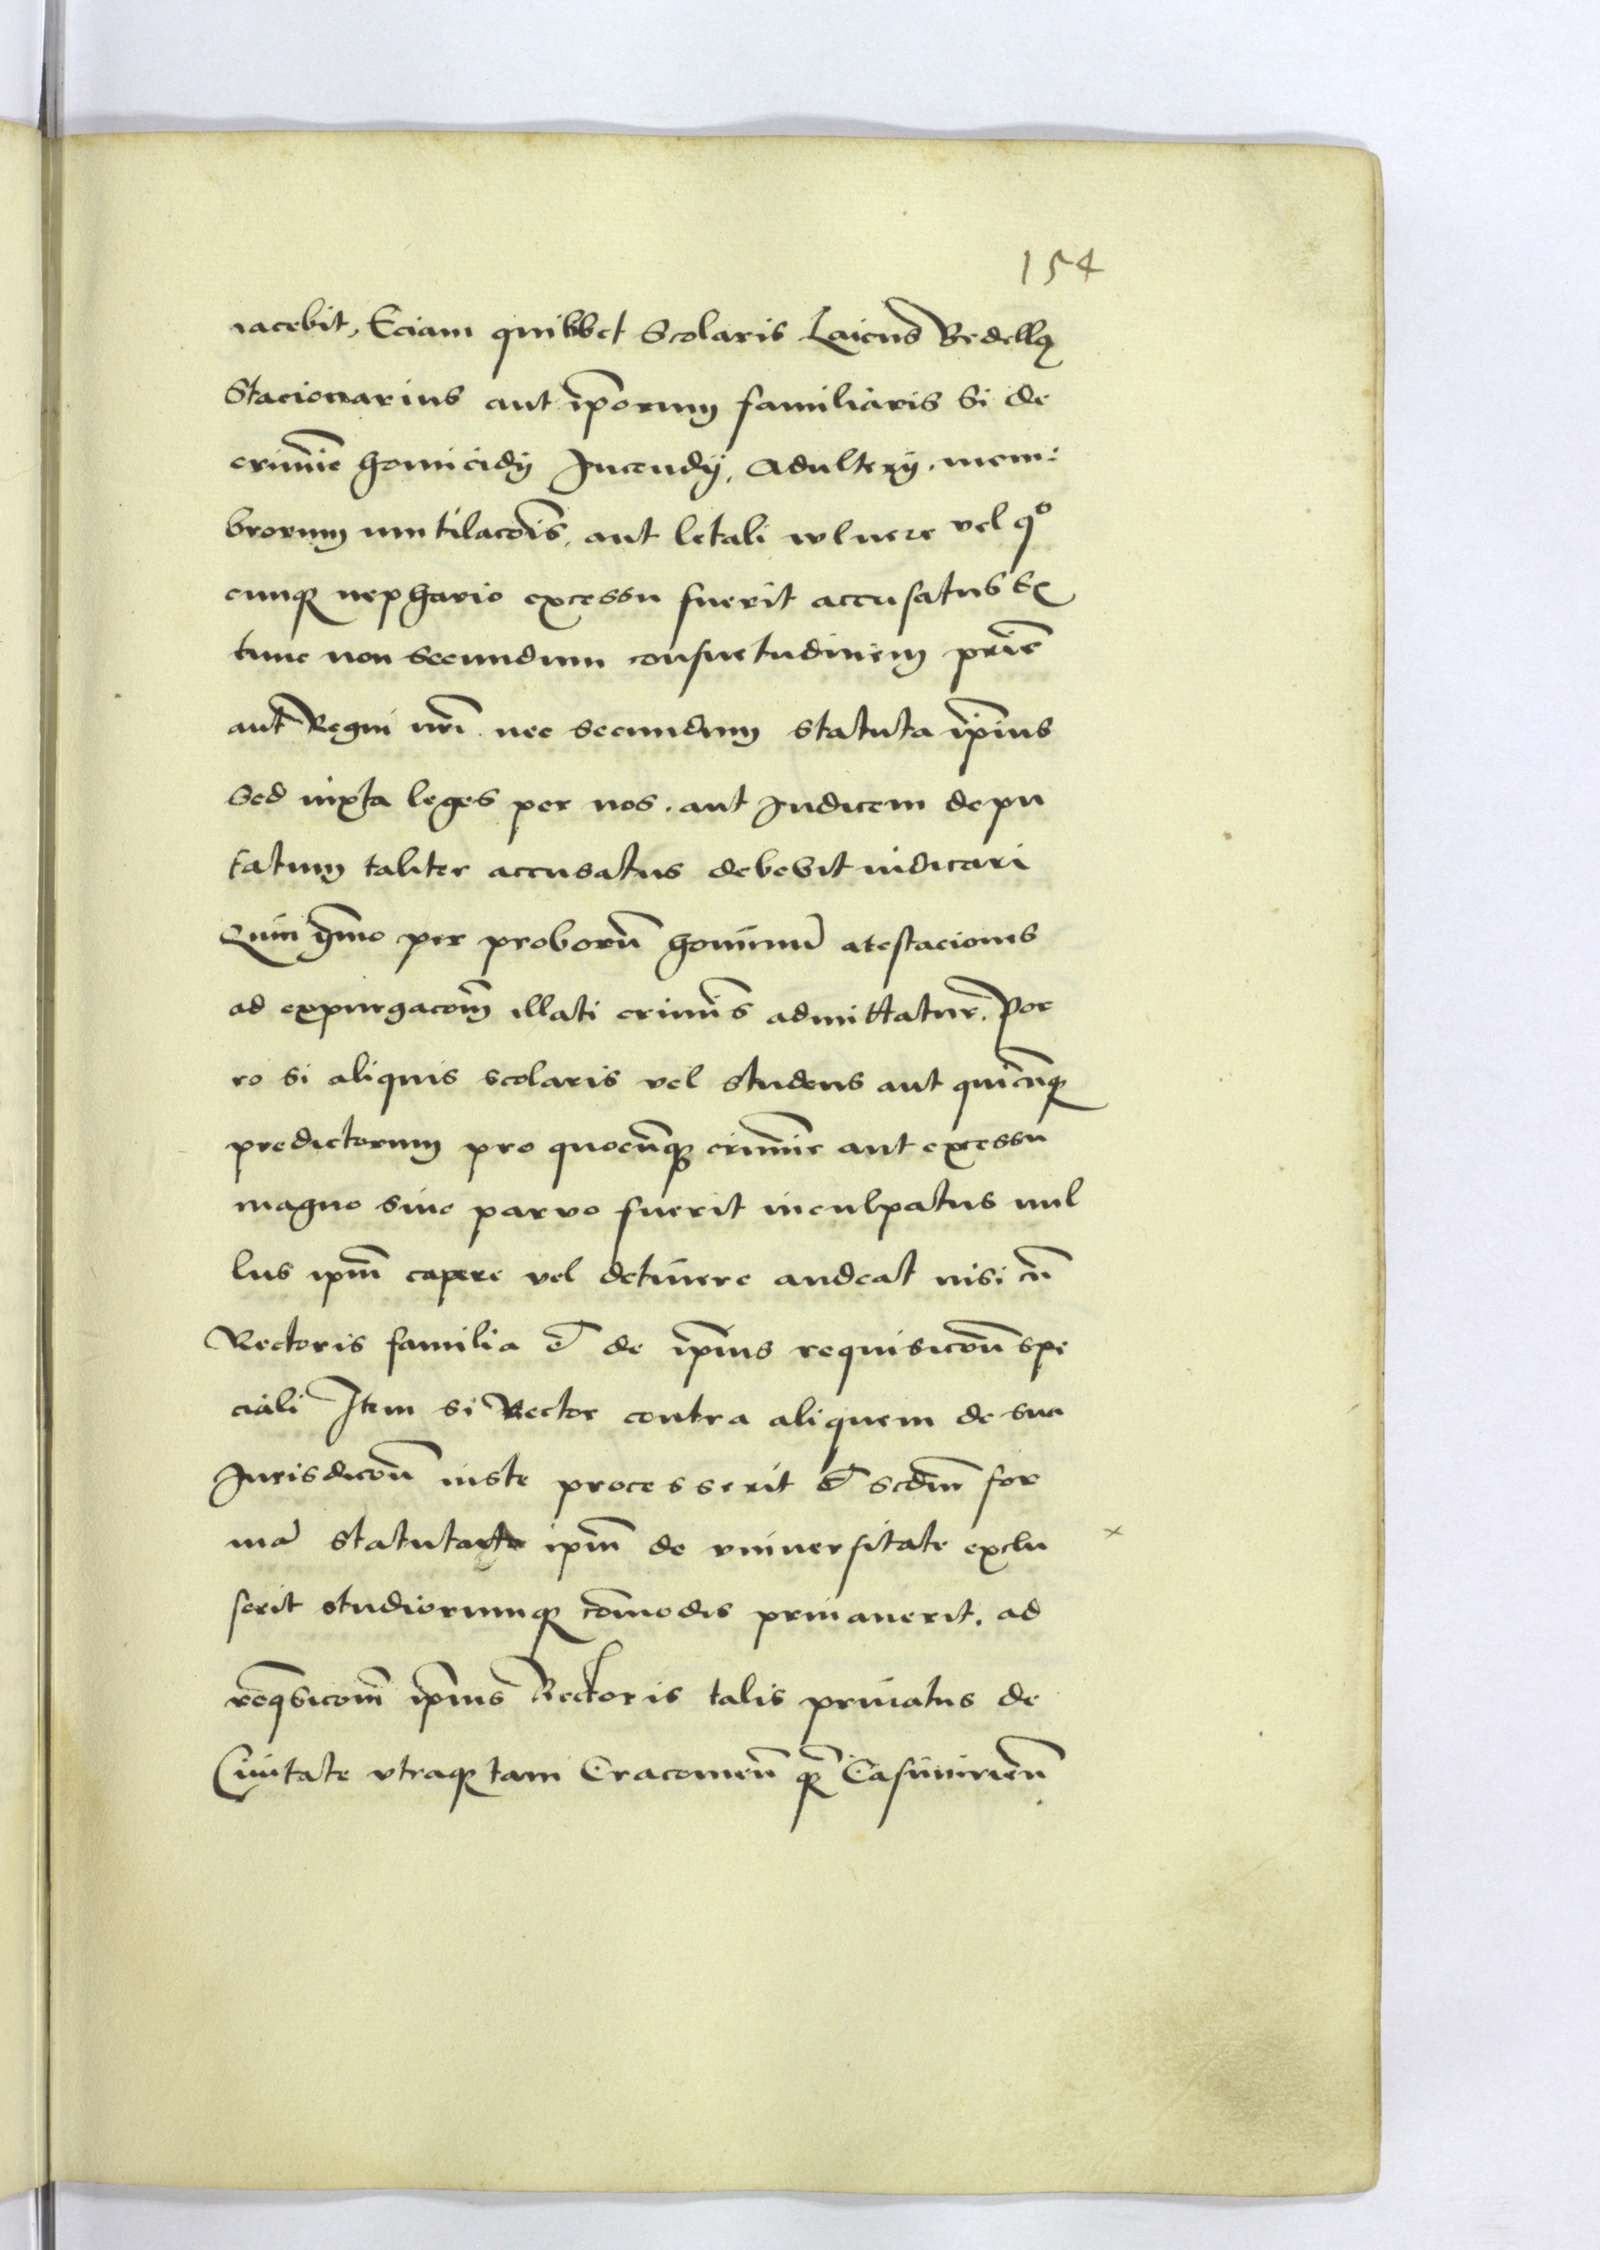 154
iacebit, Eciam quilibbet Scolaris Laicus Bedellꝯ
Stacionarius aut ip̄orum familiaris Si de
crimīe homicidij Incendij, Adulterij. mem:
brorum mutilacōis, aut letali wlnere vel qͦ
cunqꝫ nephario excessu fuerit accusatus
tunc non Secundum consuetudinem pr̄ie
aut Regni nr̄i. nec secundum statuta ip̄ius
Sed iuxta leges per nos. aut Iudicem depu
tatum taliter accusatus debebit iudicari
Quin ȳmo per proborū hominū atestaciones
ad expurgacōm̄ illati crimīs admittatur. Por
ro si aliquis scolaris vel studens aut quicūqꝫ
predictorum pro quocūqꝫ crimīe aut excessu
magno siue paruo fuerit inculpatus nul
lus ipm̄ capere vel detinere audeat nisi cū
Rectoris familia & de ip̄ius requisicōn̄ spe
ciali Item si Rector contra aliquem de sua
Iurisdicōn̄ iuste processerit & scdm̄ for
mā statuta ipm̄ de vniuersitate exclu
serit studiorumqꝫ cōmodis priuauerit. ad
reqꝫsicōm̄ ip̄ius Rectoris talis priuatus de
Ciuitate vtraqꝫ tam Cracouien̄ qꝫ̄ Casimirien̄